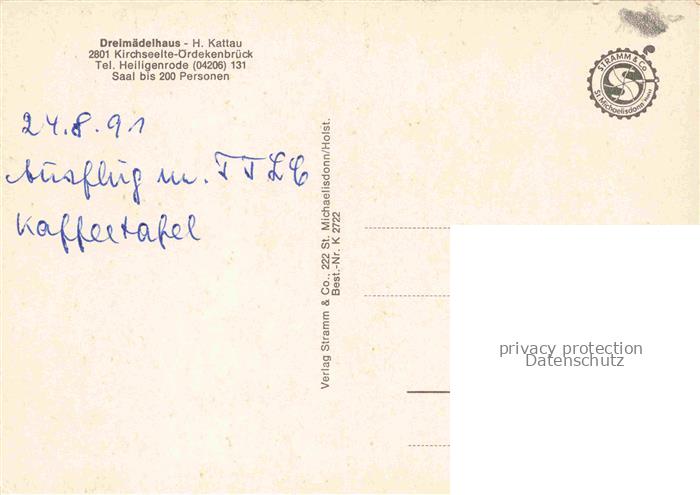 Dreimädelhaus - H. Kattau
2801 Kirchseelte-Ördekenbrück
Tel. Heiligenrode (04206) 131
Saal bis 200 Personen
STRAMM & Co
St Michaelisdonn Holst
24.8.91
Ausflug m. TTLC
Kaffeetafel
Verlag Stramm & Co., 222 St. Michaelisdonn/Holst.
Best.-Nr. K 2722
privacy protection
Datenschutz